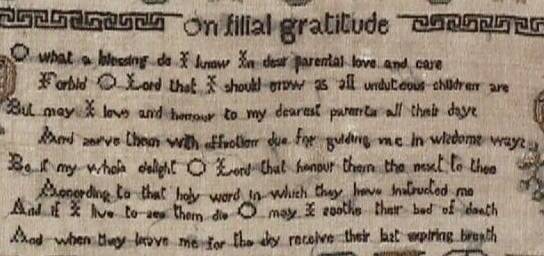 On filial gratitude
O what a blessing do I know In dear parental love and care
Forbid O Lord that I should grow as all unduteous children are
But may I love and honour to my dearest parents all their days
And serve them with affection due for guiding me in wisdoms ways
Be it my whole delight O Lord that honour them the next to thee
According to that holy word in which they have instructed me
And if I live to see them die O may I soothe their bed of death
And when they leave me for the sky receive their last expiring breath